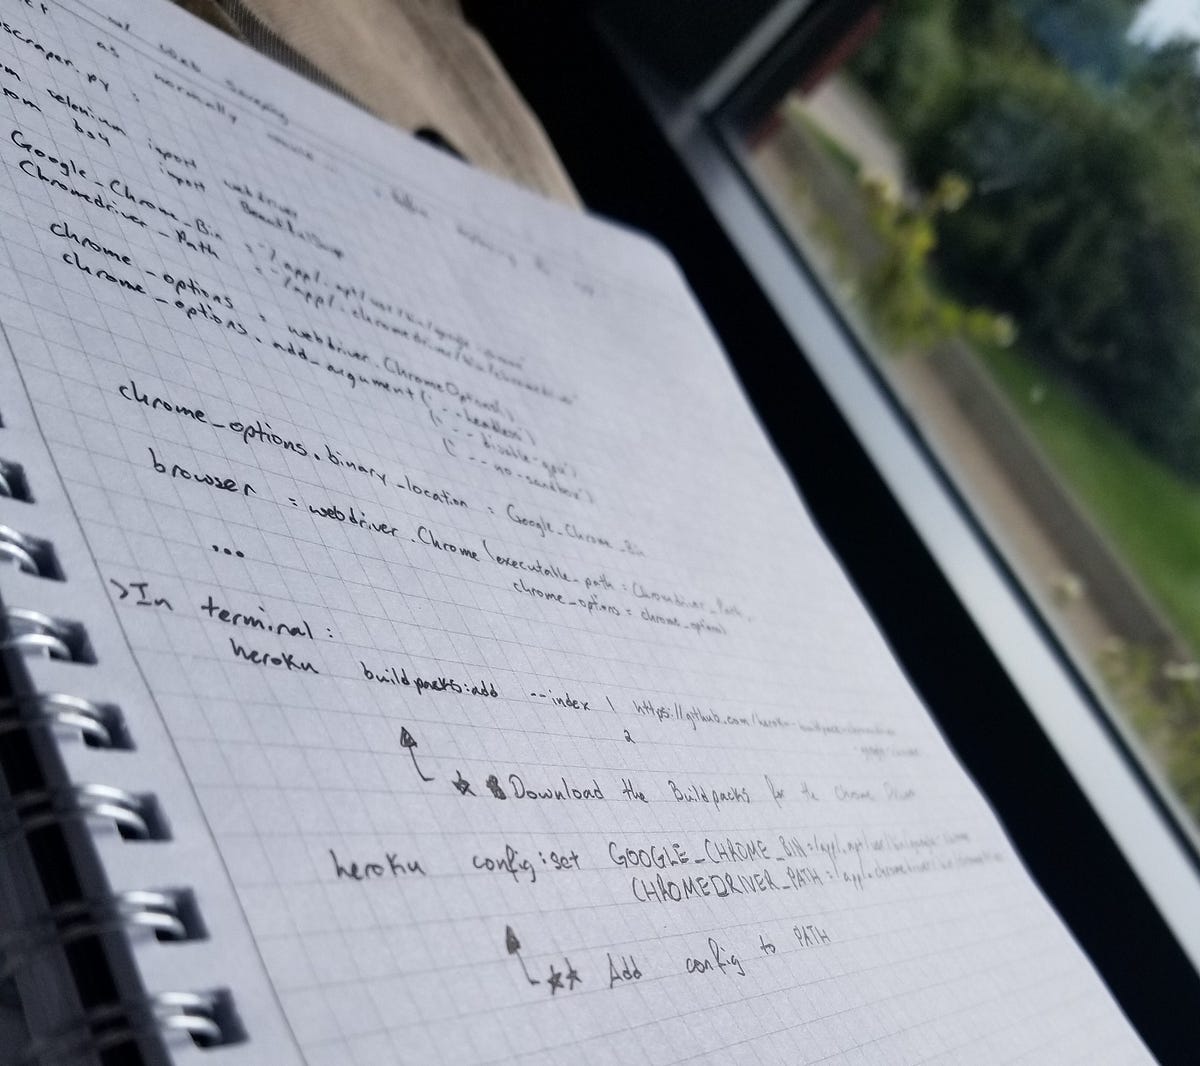 Web Scraping
as normally
scraper.py :
selenium import webdriver
bs4 import BeautifulSoup
Google_Chrome_Bin = '/app/.apt/usr/bin/google_chrome'
Chromedriver_Path = '/app/.chromedriver/bin/chromedriver'
chrome_options = webdriver.ChromeOptions()
chrome_options.add_argument('--headless')
('--disable-gpu')
('--no-sandbox')
chrome_options.binary_location = Google_Chrome_Bin
browser = webdriver.Chrome(executable_path = Chromedriver_Path,
chrome_options = chrome_options)
...
>In terminal:
heroku buildpacks:add --index 1 https://github.com/heroku-buildpack-chromedriver
2 -google-chrome
★ Download the Buildpacks for the Chrome Driver
heroku config:set GOOGLE_CHROME_BIN=/app/.apt/usr/bin/google_chrome
CHROMEDRIVER_PATH=/app/.chromedriver/bin/chromedriver
★★ Add config to PATH